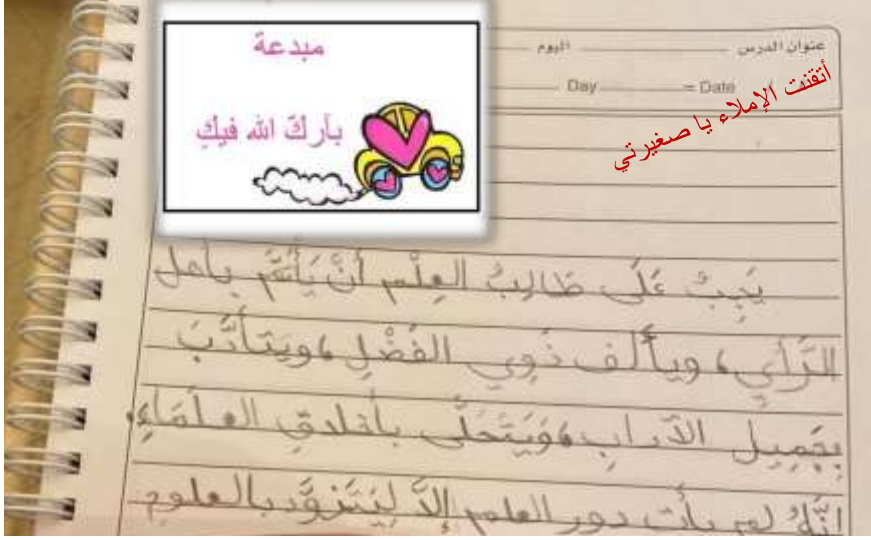 مبدعة
بآرك الله فيكِ
عنوان الدرس اليوم
Day = Date
أتقنت الإملاء يا صغيرتي
يَجِبُ عَلَى طَالِبُ العِلْمِ أَنْ يَأْتَمَّ بِأهل
الرَّأيِ، ويألف ذَوِي الفَضْلِ، ويَتأدَّبَ
بِجَمِيلِ الآدابِ، وَيَتَحَلَّى بأخلاقِ العلَمَاءِ،
إنَّهُ لم يأت دور العلم إلَّا لِيَتَزَوَّد بالعلوم